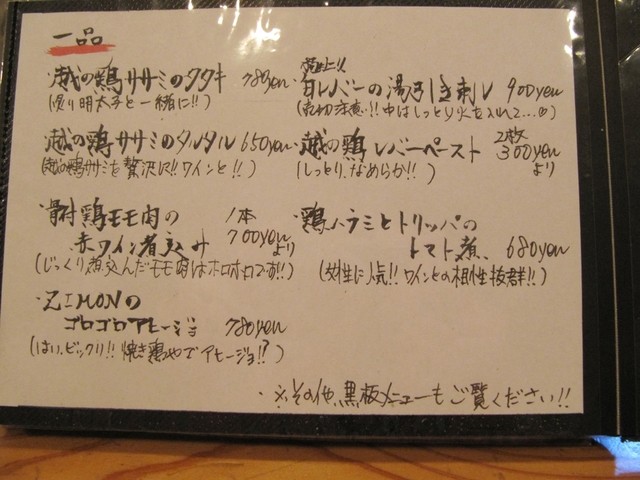 一品
・越の鶏ササミのタタキ 780yen
(炙り明太子と一緒に!!)
・越の鶏ササミのタルタル 650yen
(越の鶏ササミを贅沢に!! ワインと!!)
・骨付鶏モモ肉の 1本
赤ワイン煮込み 700yen より
(じっくり煮込んだモモ肉はホロホロです!!)
・ZIMONの
ゴロゴロアヒージョ 780yen
(はい、ビックリ!! 焼き鶏やでアヒージョ!?)
・白レバーの湯引き刺し 900yen
(売切注意!! 中はしっとり火を入れて…)
・越の鶏レバーペースト 2枚 300yen より
(しっとり、なめらか!!)
・鶏ハラミとトリッパの
トマト煮 680yen
(女性に人気!! ワインとの相性抜群!!)
※その他、黒板メニューもご覧ください!!